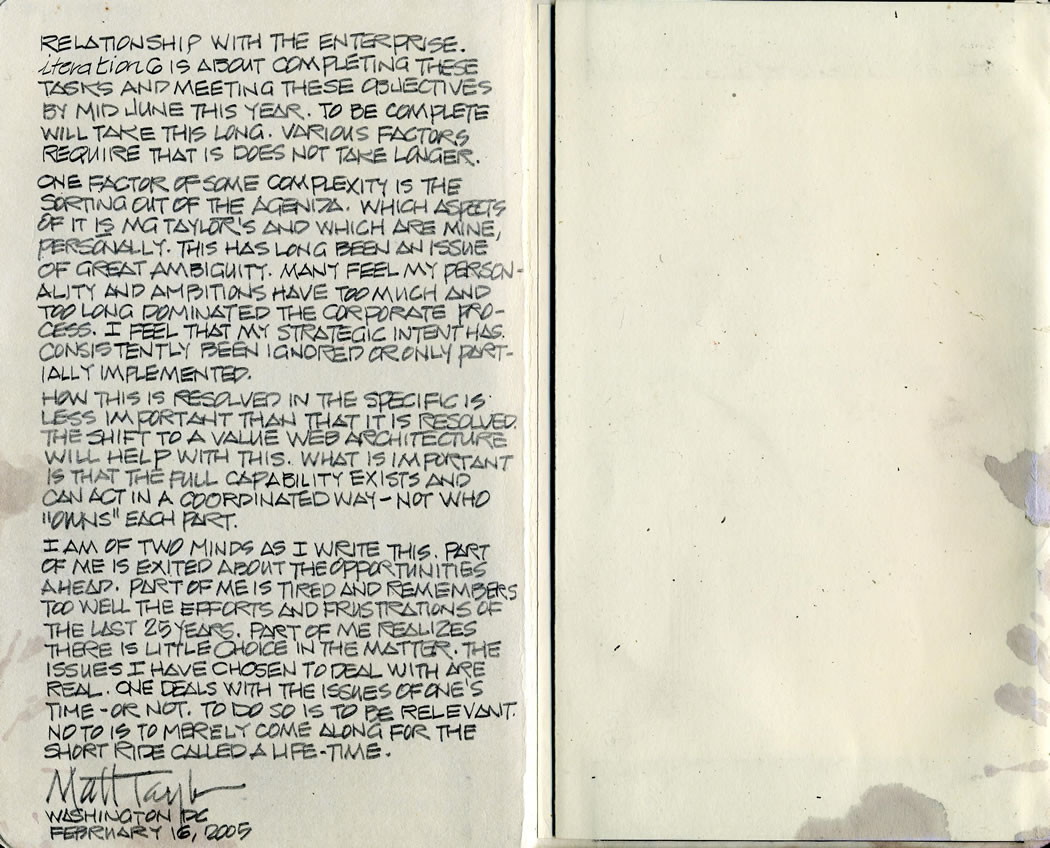 RELATIONSHIP WITH THE ENTERPRISE.
iteration6 IS ABOUT COMPLETING THESE
TASKS AND MEETING THESE OBJECTIVES
BY MID JUNE THIS YEAR. TO BE COMPLETE
WILL TAKE THIS LONG. VARIOUS FACTORS
REQUIRE THAT IS DOES NOT TAKE LONGER.
ONE FACTOR OF SOME COMPLEXITY IS THE
SORTING OUT OF THE AGENDA. WHICH ASPECTS
OF IT IS MG TAYLOR'S AND WHICH ARE MINE,
PERSONALLY. THIS HAS LONG BEEN AN ISSUE
OF GREAT AMBIGUITY. MANY FEEL MY PERSON-
ALITY AND AMBITIONS HAVE TOO MUCH AND
TOO LONG DOMINATED THE CORPORATE PRO-
CESS. I FEEL THAT MY STRATEGIC INTENT HAS
CONSISTENTLY BEEN IGNORED OR ONLY PART-
IALLY IMPLEMENTED.
HOW THIS IS RESOLVED IN THE SPECIFIC IS
LESS IMPORTANT THAN THAT IT IS RESOLVED.
THE SHIFT TO A VALUE WEB ARCHITECTURE
WILL HELP WITH THIS. WHAT IS IMPORTANT
IS THAT THE FULL CAPABILITY EXISTS AND
CAN ACT IN A COORDINATED WAY - NOT WHO
"OWNS" EACH PART.
I AM OF TWO MINDS AS I WRITE THIS. PART
OF ME IS EXITED ABOUT THE OPPORTUNITIES
AHEAD. PART OF ME IS TIRED AND REMEMBERS
TOO WELL THE EFFORTS AND FRUSTRATIONS OF
THE LAST 25 YEARS. PART OF ME REALIZES
THERE IS LITTLE CHOICE IN THE MATTER. THE
ISSUES I HAVE CHOSEN TO DEAL WITH ARE
REAL. ONE DEALS WITH THE ISSUES OF ONE'S
TIME - OR NOT. TO DO SO IS TO BE RELEVANT.
NO TO IS TO MERELY COME ALONG FOR THE
SHORT RIDE CALLED A LIFE-TIME.
Matt Taylor
WASHINGTON DC
FEBRUARY 16, 2005